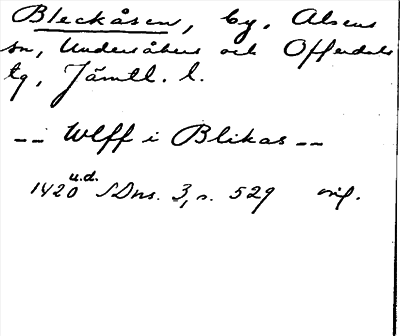 Bleckåsen, by, Alsens
sn, Undersåkers och Offerdals
tg, Jämtl. l.
-- Ulff i Blikas --
1420 u.d. SDns. 3, s. 529 orig.